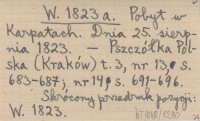 W. 1823 a. Pobyt w
Karpatach. Dnia 25. sierp-
nia 1823. — Pszczółka Pol-
ska (Kraków) t. 3, nr 13, s.
683-687; nr 14, s. 691-696.
Skrócony przedruk pozycji:
W. 1823.